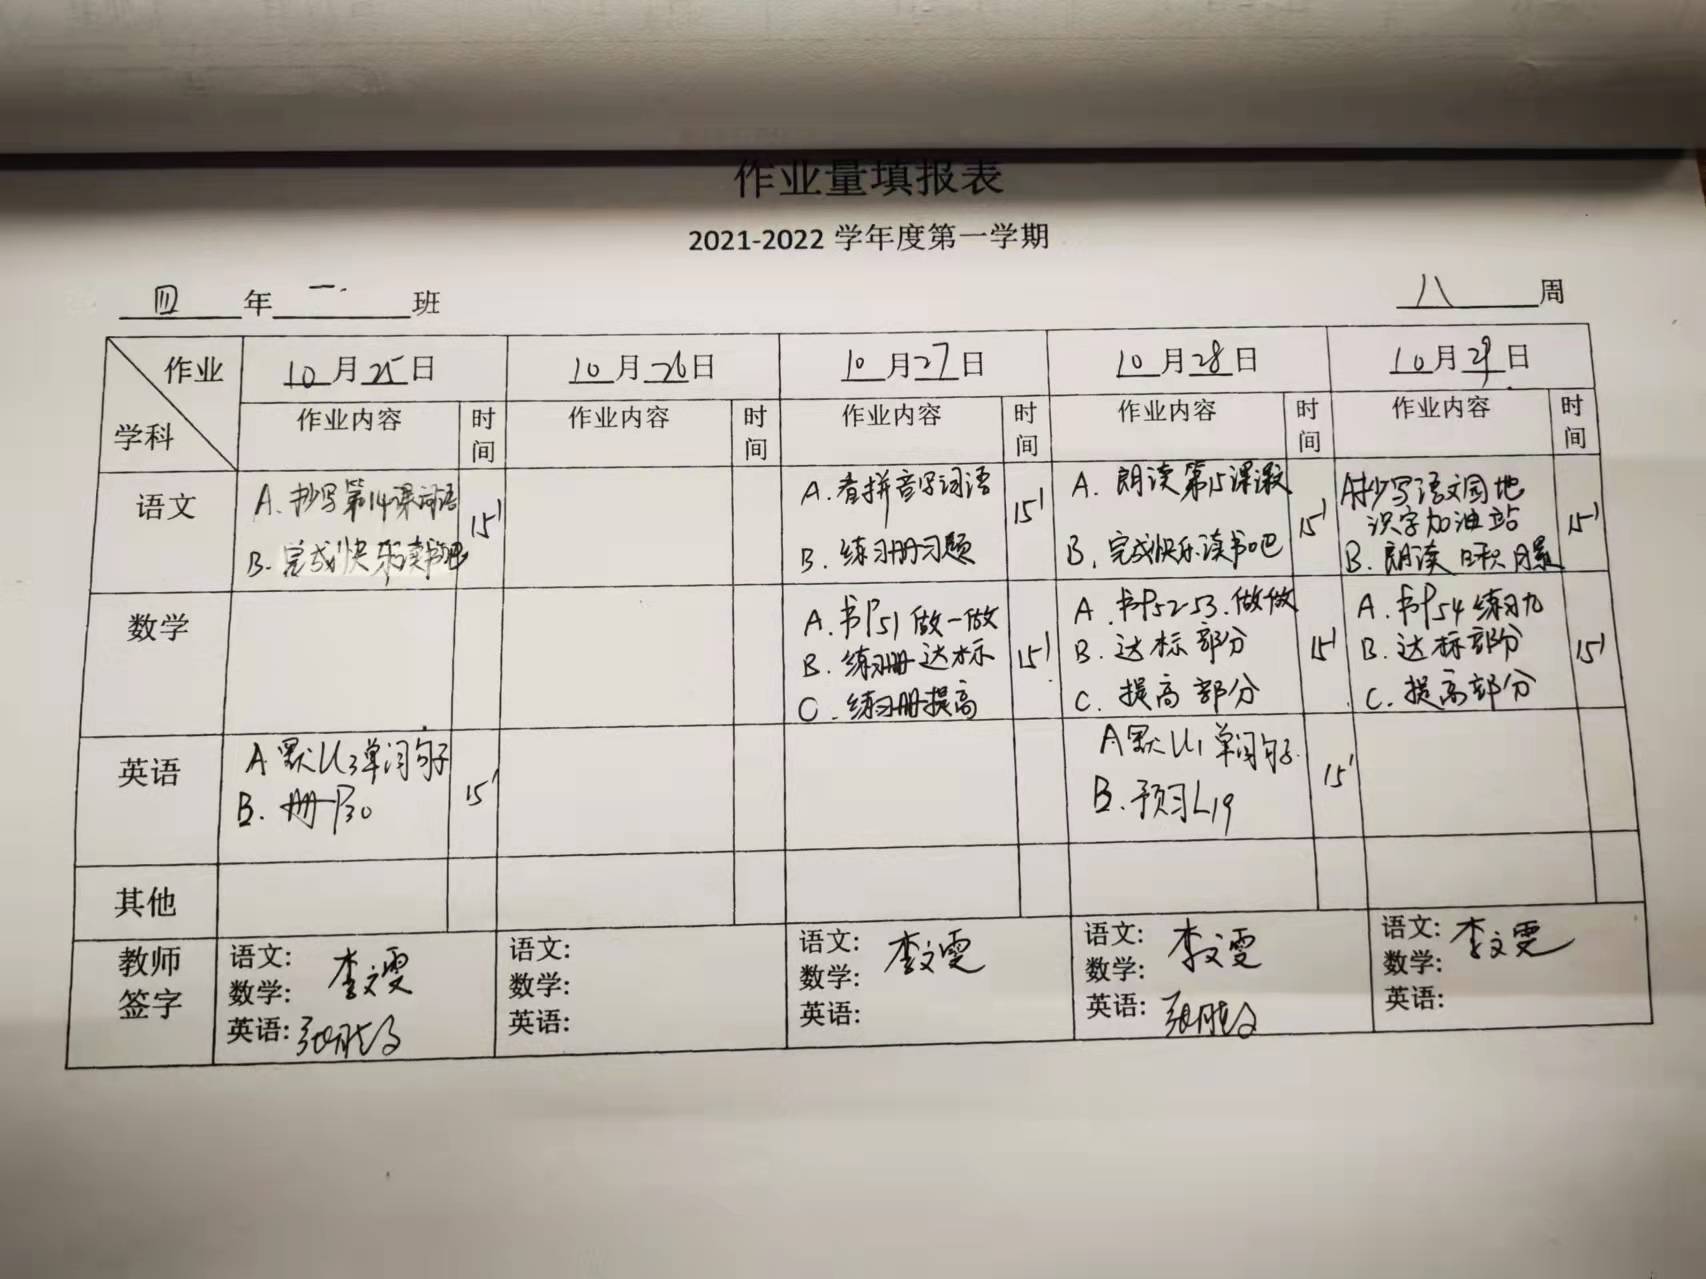 作业量填报表
2021-2022 学年度第一学期
四 年 一. 班 八 周
作业 10月25日 10月26日 10月27日 10月28日 10月29日
学科 作业内容 时间 作业内容 时间 作业内容 时间 作业内容 时间 作业内容 时间
语文 A. 抄写第14课词语 15' A. 看拼音写词语 15' A. 朗读第15课课文 15' A抄写语文园地 15'
识字加油站
B. 完成快乐读书吧 B. 练习册习题 B. 完成快乐读书吧 B. 朗读 日积月累
数学 A. 书P51 做一做 15' A. 书P52-53. 做做 15' A. 书P54 练习九 15'
B. 练习册达标 B. 达标部分 B. 达标部分
C. 练习册提高 C. 提高部分 C. 提高部分
英语 A 默U3单词句子 15' A默U1单词句子. 15'
B. 册P30 B. 预习L19
其他
教师签字 语文: 李文雯 语文: 语文: 李文雯 语文: 李文雯 语文: 李文雯
数学: 数学: 数学: 数学: 数学:
英语: 英语: 英语: 英语: 英语: